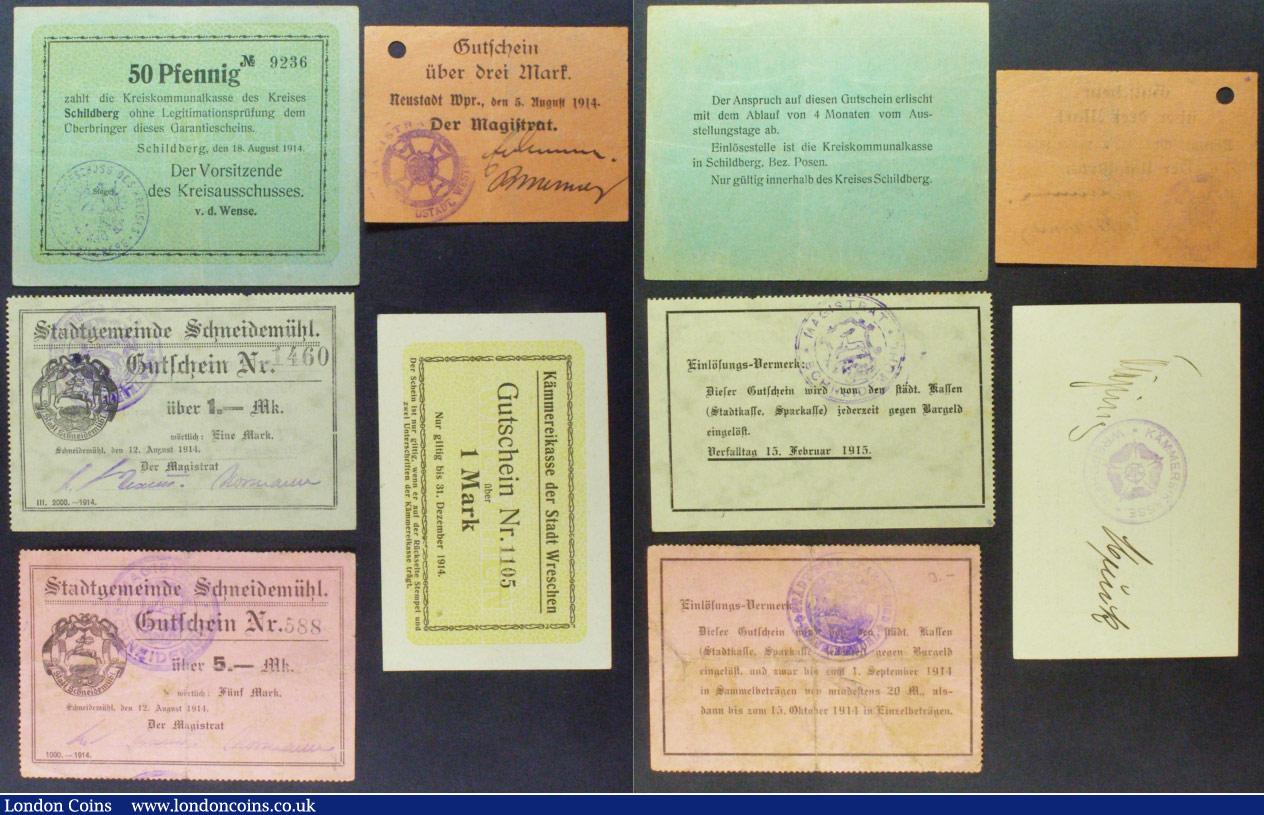 50 Pfennig № 9236
zahlt die Kreiskommunalkasse des Kreises
Schildberg ohne Legitimationsprüfung dem
Überbringer dieses Garantiescheins.
Schildberg, den 18. August 1914.
Der Vorsitzende
Siegel
des Kreisausschusses.
v. d. Wense.
Gutschein
über drei Mark.
Neustadt Wpr., den 5. August 1914.
Der Magistrat.
Stadtgemeinde Schneidemühl.
Gutschein Nr. 1460
über 1.— Mk.
wörtlich: Eine Mark.
Schneidemühl, den 12. August 1914.
Der Magistrat
III. 2000. —1914.
Stadt Schneidemühl
Kämmereikasse der Stadt Wreschen
Gutschein Nr. 1105
über
1 Mark
Nur giltig bis 31. Dezember 1914.
Der Schein ist nur giltig, wenn er auf der Rückseite Stempel und
zwei Unterschriften der Kämmereikasse trägt.
Stadtgemeinde Schneidemühl.
Gutschein Nr. 588
über 5.— Mk.
wörtlich: Fünf Mark.
Schneidemühl, den 12. August 1914.
Der Magistrat
1000. —1914.
Stadt Schneidemühl
Der Anspruch auf diesen Gutschein erlischt
mit dem Ablauf von 4 Monaten vom Aus-
stellungstage ab.
Einlösestelle ist die Kreiskommunalkasse
in Schildberg, Bez. Posen.
Nur gültig innerhalb des Kreises Schildberg.
MAGISTRAT
SCHNEIDEMÜHL
Einlösungs-Vermerk:
Dieser Gutschein wird von den städt. Kassen
(Stadtkasse, Sparkasse) jederzeit gegen Bargeld
eingelöst.
Verfalltag 15. Februar 1915.
KÄMMEREIKASSE
Einlösungs-Vermerk
3.-
Dieser Gutschein wird von den städt. Kassen
(Stadtkasse, Sparkasse) jederzeit gegen Bargeld
eingelöst, und zwar bis zum 1. September 1914
in Sammelbeträgen von mindestens 20 M., als-
dann bis zum 15. Oktober 1914 in Einzelbeträgen.
London Coins www.londoncoins.co.uk